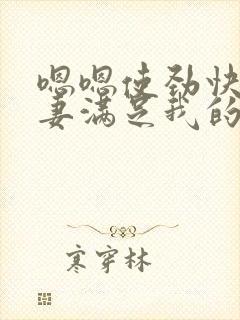 嗯嗯使劲快
妻满足我的
寒穿林